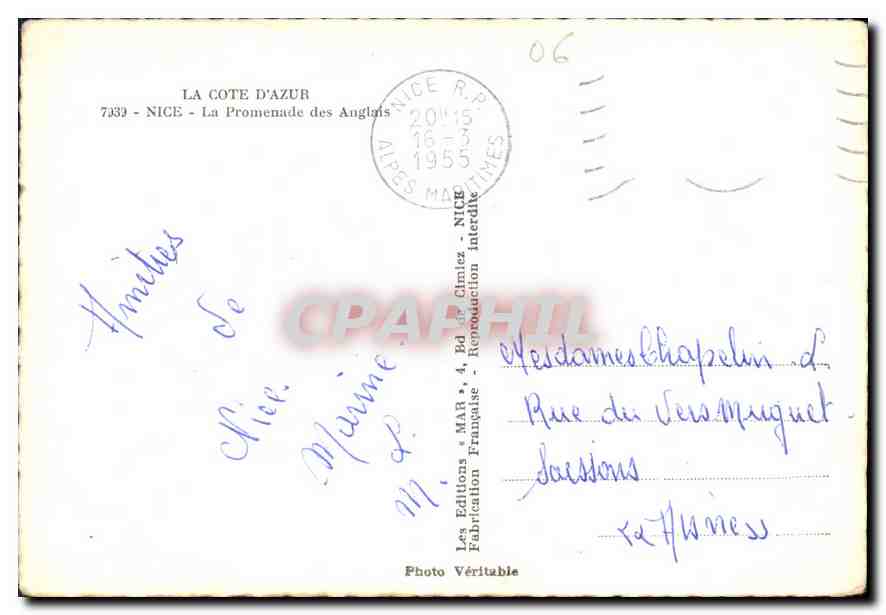 06
LA COTE D'AZUR
7939 - NICE - La Promenade des Anglais
NICE R.P.
20H15
16-3
1955
ALPES MARITIMES
Amitiés
de
Nice.
Marine
M. L.
CPAPHIL
Les Editions « MAR », 4, Bd de Cimiez - NICE
Fabrication Française - Reproduction interdite
Mesdames Chapelin L
Rue du Vers Muguet
Soessons
Photo Véritable